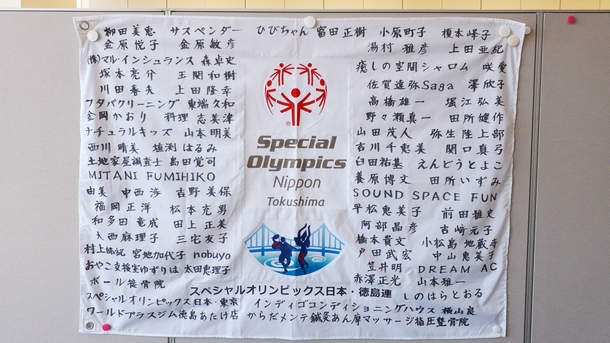 柳田美恵 サスペンダー ひびちゃん 富田正樹 小原町子 榎本峰子
金原悦子 金原敏彦
湯村雅彦 上田亜紀
(株)マル・インシュランス 森卓史
癒しの空間シャロム 咲愛
塚本亮介 玉関和樹
佐賀達弥Saga 澤欣子
川田春夫 上田隆幸
高橋雄一 堀江弘美
フタバクリーニング 東端久和
野々瀬真一 田所健作
金岡かおり 料理志美津
山田茂人 弥生陸上部
ナチュラルキッズ 山本明美
古川千恵美 関口真弓
西川晴美 植渕はるみ
臼田祐基 えんどうとよこ
土地家屋調査士 島田覚司
蓑原博文 田所いずみ
MITANI FUMIHIKO
SOUND SPACE FUN
由美 中西渉 吉野美保
平松恵美子 前田雅文
福岡正洋 松本充男
阿部晶彦 吉崎元子
和多田竜成 田上正美
橋本貴文 小松島地蔵寺
大西麻理子 三宅友子
戸田武宏 中山恵美子
村上 宮地加代子 nobuyo
笠井明 DREAM AC
おやこ支援室ゆずりは 太田恵理子
赤澤正光 山本雅一
ポール接骨院
Special
Olympics
Nippon
Tokushima
スペシャルオリンピックス日本・徳島連 しのはらとおる
スペシャルオリンピックス日本・東京 インディゴコンディショニングハウス 横山良
ワールドプラスジム徳島あたけ店 からだメンテ鍼灸あん摩マッサージ指圧整骨院